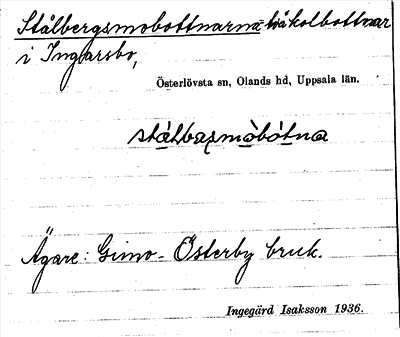 Stålbergsmobottnarna = två kolbottnar
i Ingbarsbo,
Österlövsta sn, Olands hd, Uppsala län.
Ägare: Gimo-Österby bruk.
Ingegärd Isaksson 1936.